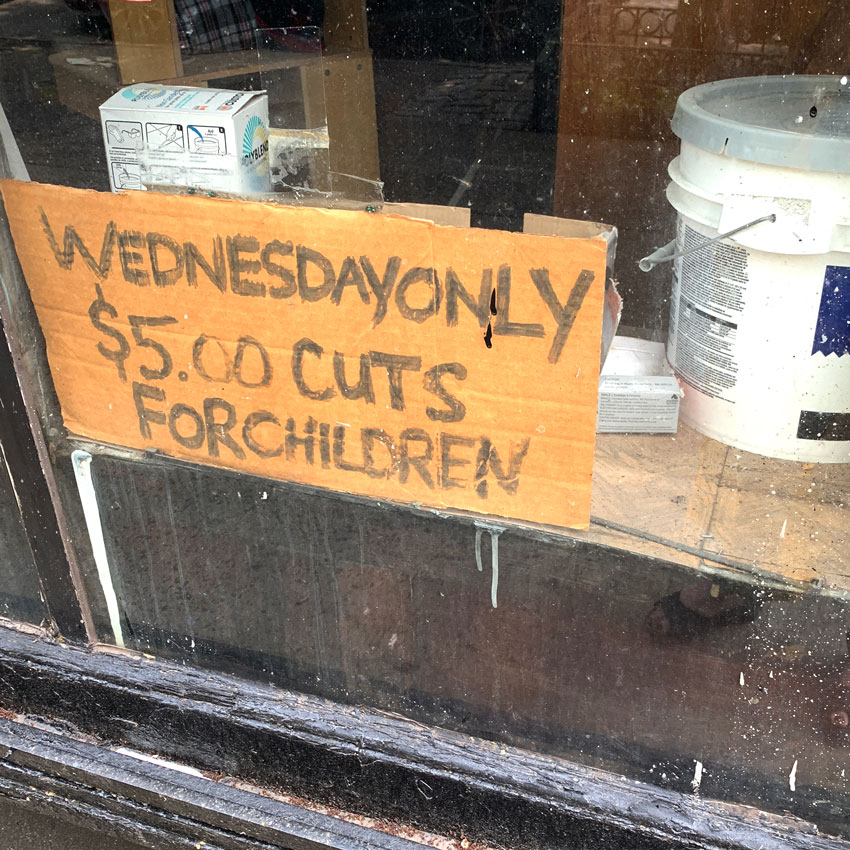 WEDNESDAYONLY
$5.00 CUTS
FORCHILDREN